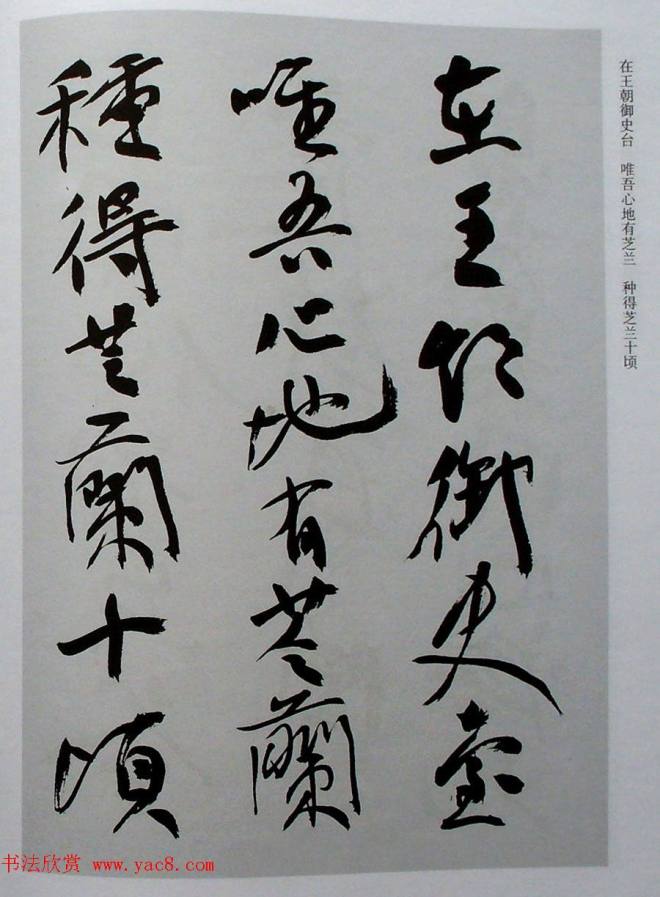 在王朝御史台　唯吾心地有芝兰　种得芝兰十顷
在王朝御史臺
唯吾心地有芝蘭
種得芝蘭十頃
书法欣赏 www.yac8.com